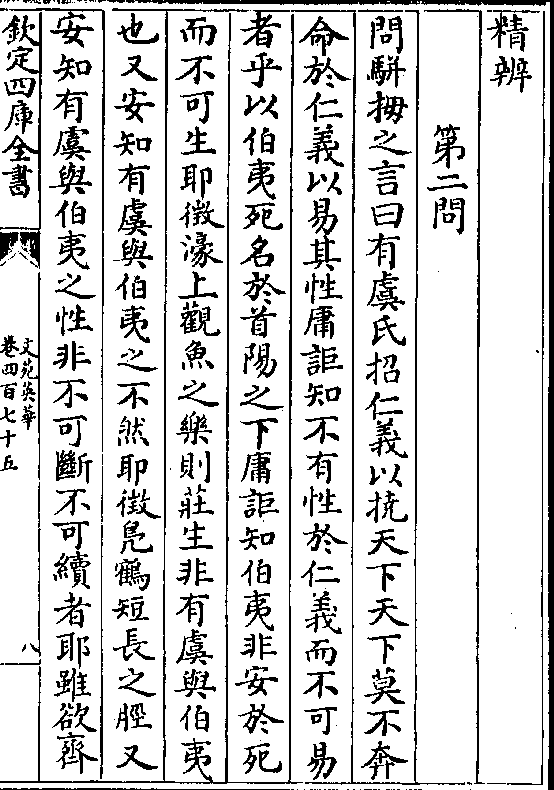 精辨
第二問
問駢拇之言曰有虞氏招仁義以撓天下天下莫不奔
命於仁義以易其性庸詎知不有性於仁義而不可易
者乎以伯夷死名於首陽之下庸詎知伯夷非安於死
而不可生耶徵濠上觀魚之樂則莊生非有虞與伯夷
也又安知有虞與伯夷之不然耶徵鳧鶴短長之脛又
安知有虞與伯夷之性非不可斷不可續者耶雖欲齊
欽定四庫全書
文苑英華
卷四百七十五
八